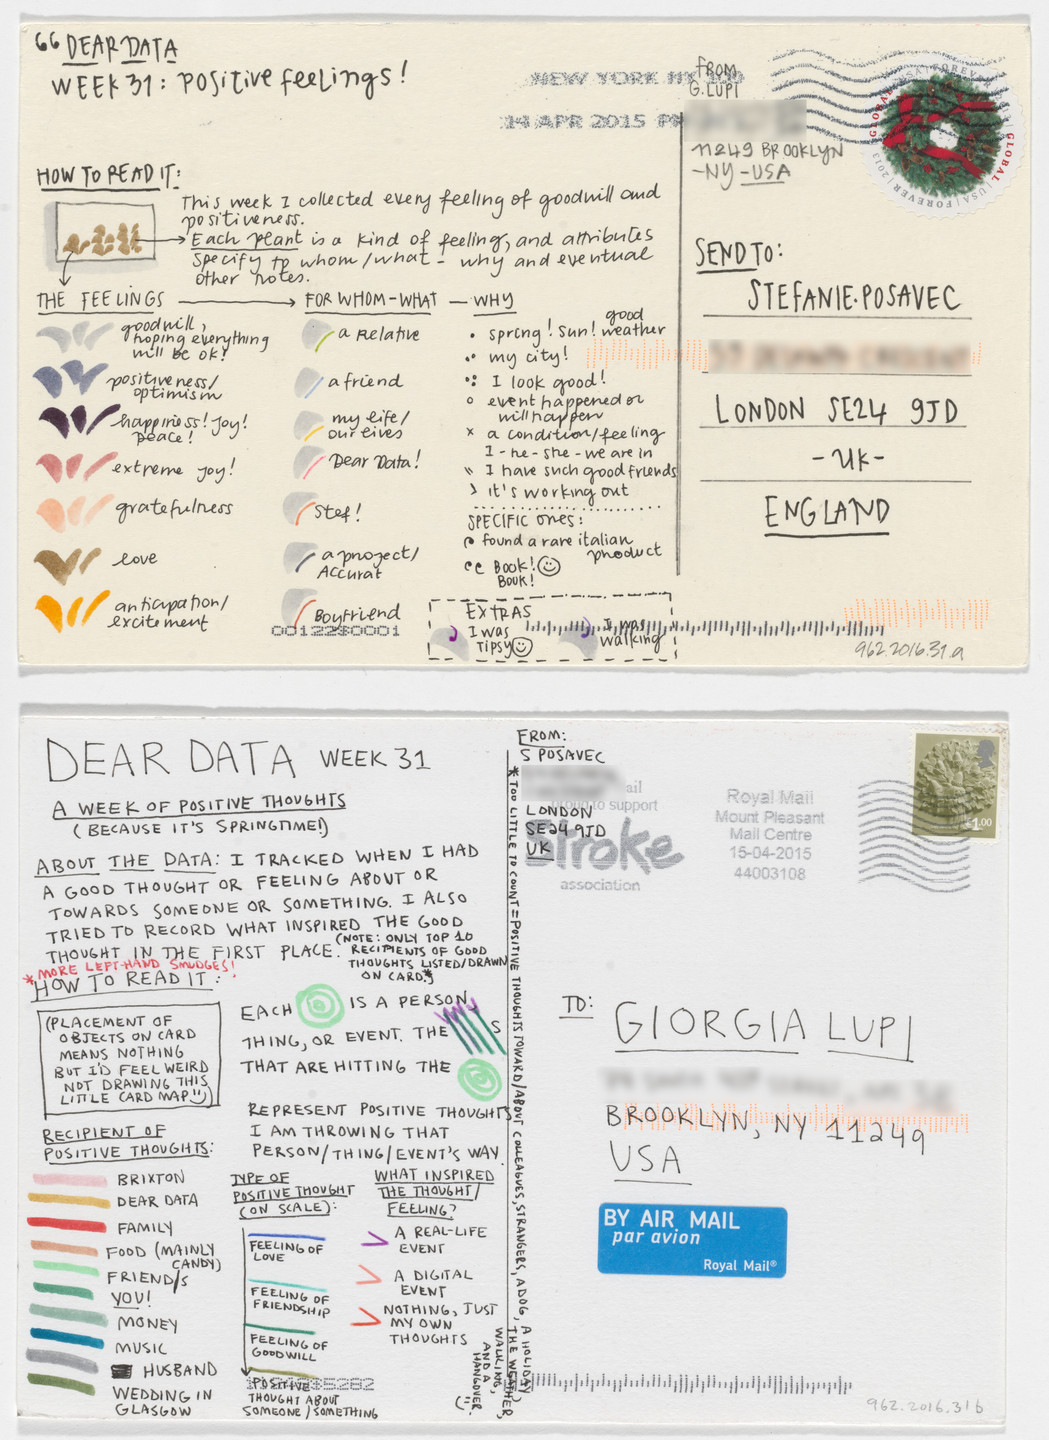 “DEAR DATA
WEEK 31: positive feelings!
NEW YORK NY 100
14 APR 2015 PM
FROM
G.LUPI
11249 BROOKLYN
-NY-USA
GLOBAL | USA | FOREVER | 2013
HOW TO READ IT:
This week I collected every feeling of goodwill and
positiveness.
Each plant is a kind of feeling, and attributes
specify to whom/what - why and eventual
other notes.
THE FEELINGS
goodwill,
hoping everything
will be ok!
positiveness/
optimism
happiness! Joy!
peace!
extreme joy!
gratefulness
love
anticipation/
excitement
FOR WHOM-WHAT
a Relative
a friend
my life/
our lives
Dear Data!
Stef!
a project/
Accurat
Boyfriend
WHY
spring! Sun! good weather
my city!
I look good!
event happened or
will happen
a condition/feeling
I-he-she-we are in
I have such good friends
it's working out
SPECIFIC ONES:
found a rare italian
product
BOOK!
BOOK!
EXTRAS
I was
tipsy
I was
walking
SEND TO:
STEFANIE.POSAVEC
LONDON SE24 9JD
-UK-
ENGLAND
962.2016.31.a
DEAR DATA WEEK 31
A WEEK OF POSITIVE THOUGHTS
(BECAUSE IT'S SPRINGTIME!)
ABOUT THE DATA: I TRACKED WHEN I HAD
A GOOD THOUGHT OR FEELING ABOUT OR
TOWARDS SOMEONE OR SOMETHING. I ALSO
TRIED TO RECORD WHAT INSPIRED THE GOOD
THOUGHT IN THE FIRST PLACE.
(NOTE: ONLY TOP 10
RECIPIENTS OF GOOD
THOUGHTS LISTED/DRAWN
ON CARD.*)
*MORE LEFT-HAND SMUDGES!
HOW TO READ IT:
(PLACEMENT OF
OBJECTS ON CARD
MEANS NOTHING
BUT I'D FEEL WEIRD
NOT DRAWING THIS
LITTLE CARD MAP)
EACH IS A PERSON,
THING, OR EVENT. THE S
THAT ARE HITTING THE
REPRESENT POSITIVE THOUGHTS
I AM THROWING THAT
PERSON/THING/EVENT'S WAY.
RECIPIENT OF
POSITIVE THOUGHTS:
BRIXTON
DEAR DATA
FAMILY
FOOD (MAINLY
CANDY)
FRIEND/S
YOU!
MONEY
MUSIC
HUSBAND
WEDDING IN
GLASGOW
TYPE OF
POSITIVE THOUGHT
(ON SCALE):
FEELING OF
LOVE
FEELING OF
FRIENDSHIP
FEELING OF
GOODWILL
POSITIVE
THOUGHT ABOUT
SOMEONE/SOMETHING
WHAT INSPIRED
THE THOUGHT/
FEELING?
A REAL-LIFE
EVENT
A DIGITAL
EVENT
NOTHING, JUST
MY OWN
THOUGHTS
*TOO LITTLE TO COUNT = POSITIVE THOUGHTS TOWARD/ABOUT COLLEAGUES, STRANGERS, A DOG, A HOLIDAY, THE WEATHER,
WALKING,
AND A
HANGOVER.
FROM:
S POSAVEC
LONDON
SE24 9JD
UK
proud to support
Stroke
association
Royal Mail
Mount Pleasant
Mail Centre
15-04-2015
44003108
£1.00
TO:
GIORGIA LUPI
BROOKLYN, NY 11249
USA
BY AIR MAIL
par avion
Royal Mail®
962.2016.31b